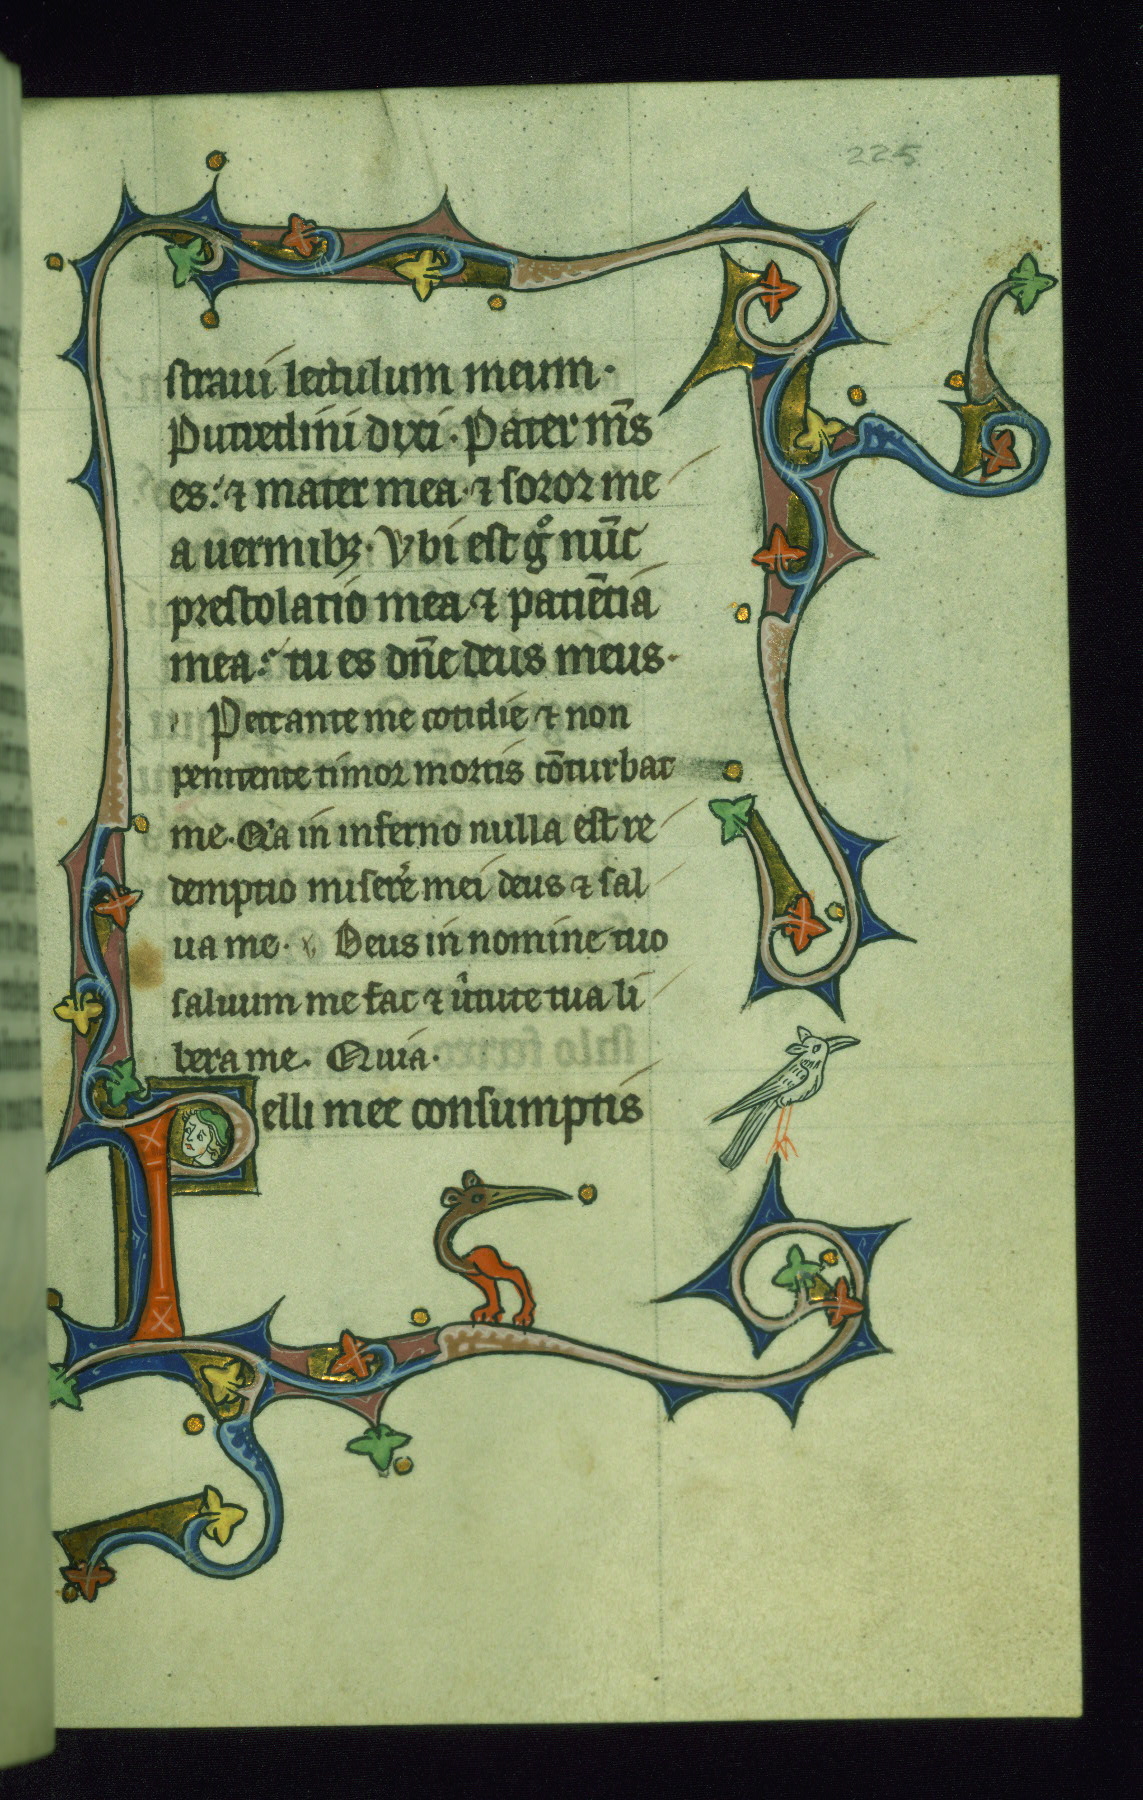 225
straui lectulum meum·
Putredini dixi· Pater m̄s
es· ⁊ mater mea· ⁊ soror me
a uermibꝫ· Vbi est gͦ nūc
prestolatio mea ⁊ patiētia
mea· tu es dn̄e deus meus·
Peccante me cotidie ⁊ non
penitente timor mortis cōturbat
me· Q'a in inferno nulla est re
demptio miserē mei deus ⁊ sal
ua me· Deus in nomine tuo
saluum me fac ⁊ ūtute tua li
bera me· Quia·
Pelli mee consumptis